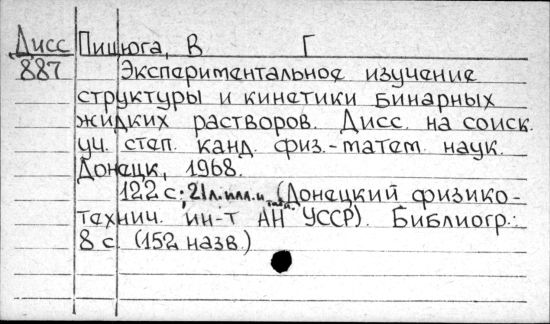 Дисс Пицюга, В Г
887 Экспериментальное изучение
структуры и кинетики бинарных
жидких растворов. Дисс. на соиск.
уч. степ. канд. физ.-матем. наук.
Донецк, 1968.
122 с; 21 л. илл. и табл. (Донецкий физико-
технич. ин-т АН УССР). Библиогр.:
8 с (152 назв.)